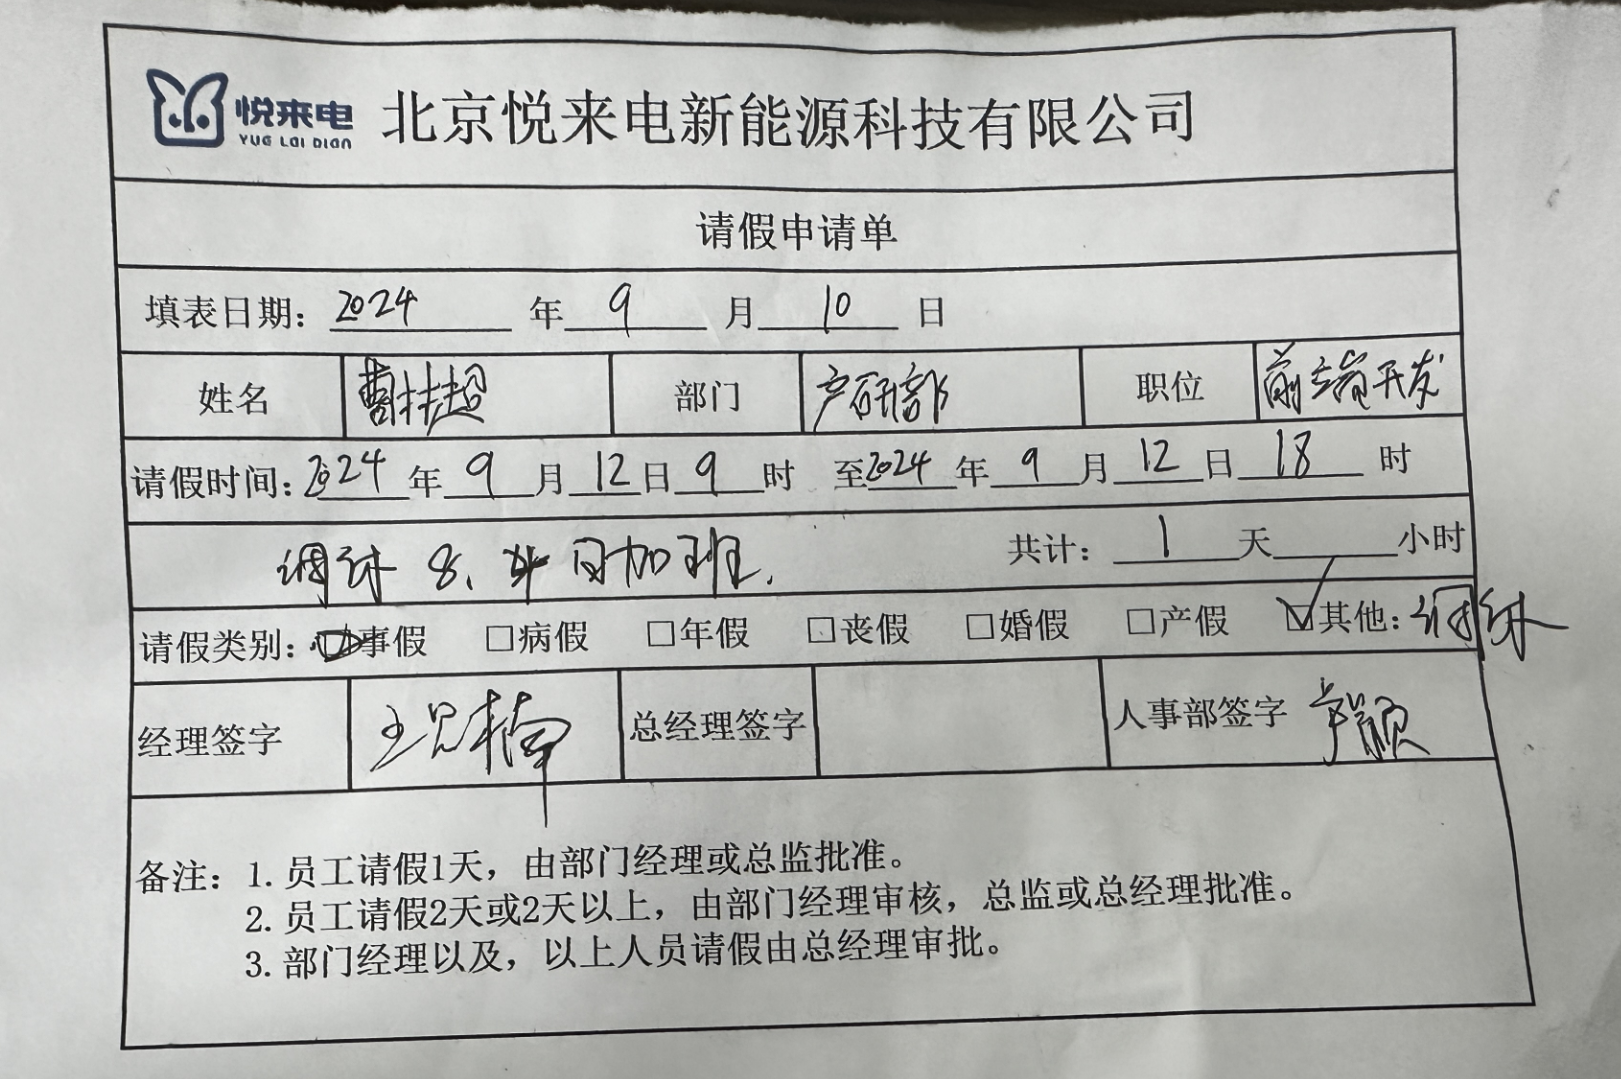 悦来电
YUE LAI DIAN
北京悦来电新能源科技有限公司
请假申请单
填表日期：2024年9月10日
姓名 曹桂超 部门 产研部 职位 前端开发
请假时间：2024年9月12日9时 至2024年9月12日18时
调休 8. 日加班. 共计：1天 小时
请假类别：□事假 □病假 □年假 □丧假 □婚假 □产假 ☑其他：调休
经理签字 王 楠 总经理签字 人事部签字 尹颖
备注：1. 员工请假1天，由部门经理或总监批准。
2. 员工请假2天或2天以上，由部门经理审核，总监或总经理批准。
3. 部门经理以及，以上人员请假由总经理审批。